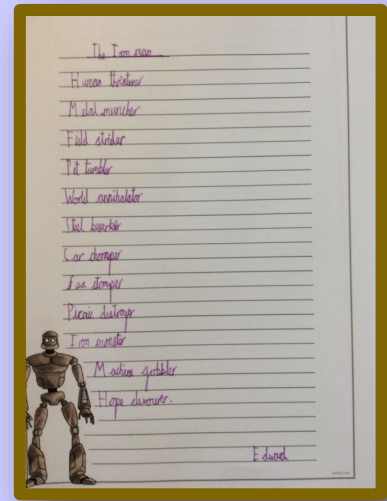 The Iron man
Human threatener
Metal muncher
Field strider
Pit tumbler
World annihalator
Steel beserker
Car chomper
Sea stomper
Picnic destroyer
Iron monster
Machine gobbler
Hope devourer.
Edward